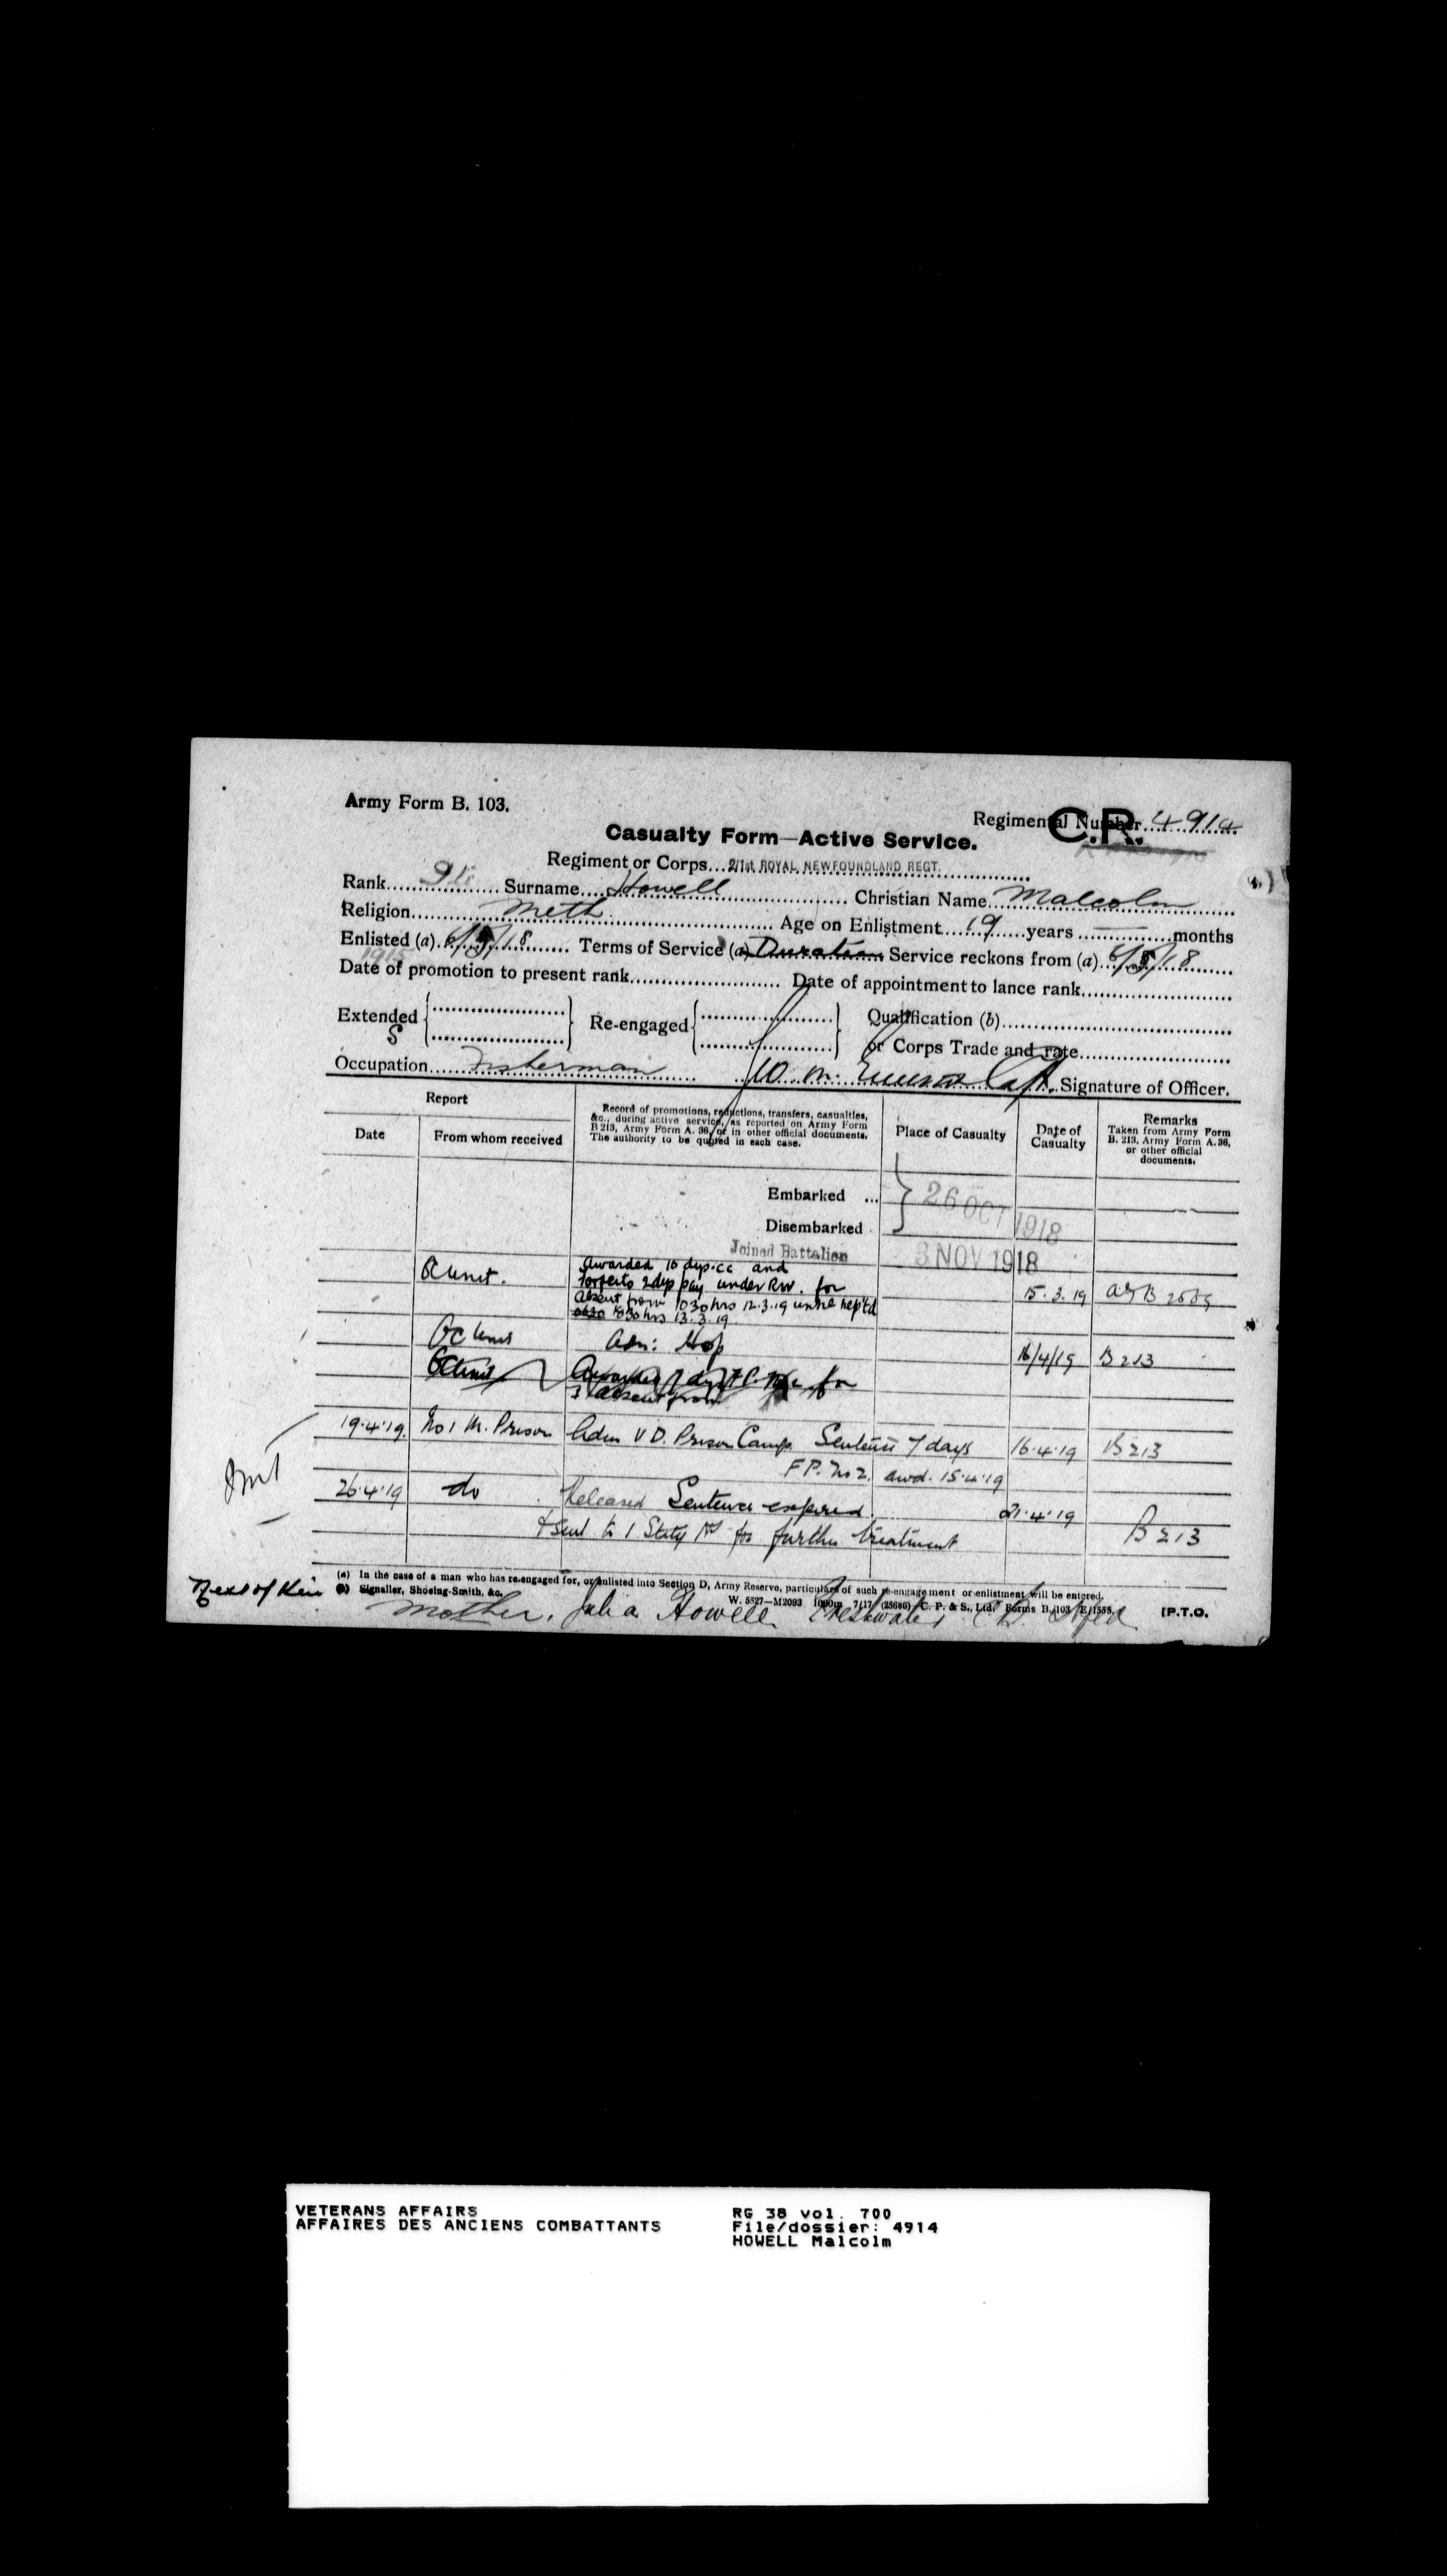 Army Form B. 103.
Regimental Number 4914
C.R.
Casualty Form—Active Service.
Regiment or Corps 2/1st ROYAL NEWFOUNDLAND REGT.
Rank Surname Howell Christian Name Malcolm
Religion Meth Age on Enlistment 19 years — months
Enlisted (a) 6/5/18 Terms of Service (a) Duration Service reckons from (a) 6/5/18
Date of promotion to present rank Date of appointment to lance rank
Extended Re-engaged Qualification (b)
or Corps Trade and rate
Occupation Fisherman Capt. Signature of Officer.
Report
Date From whom received
Record of promotions, reductions, transfers, casualties, &c., during active service, as reported on Army Form B 213, Army Form A. 36, or in other official documents. The authority to be quoted in each case.
Place of Casualty
Date of Casualty
Remarks
Taken from Army Form B. 213, Army Form A. 36, or other official documents.
Embarked ... 26 OCT 1918
Disembarked
Joined Battalion 3 NOV 1918
OC Unit. Awarded 10 dys. cc and
forfeits 2 dys pay under RW. for 15.3.19
absent from 1030 hrs 12.3.19 until rep'td
0630 1030 hrs 13.3.19.
OC Unit Adm: Hosp 16/4/19 B 213
OC Unit Awarded 7 dys F.P. No 2 for
absent from
19.4.19 No 1 M. Prison Adm V D. Prison Camp. Sentence 7 days 16.4.19 B 213
F P. No 2. awd. 15.4.19
26.4.19 do Released Sentence expired 21.4.19
& sent to 1 Staty for further treatment B 213
(a) In the case of a man who has re-engaged for, or enlisted into Section D, Army Reserve, particulars of such re-engagement or enlistment will be entered.
(b) Signaller, Shoeing-Smith, &c.
W. 5527—M2093 1000m 7/17 (25686) C. P. & S., Ltd. Forms B./103 E/1555.
[P.T.O.
Next of Kin
Mother. Julia Howell Freshwater, Nfld
VETERANS AFFAIRS
AFFAIRES DES ANCIENS COMBATTANTS
RG 38 vol. 700
File/dossier: 4914
HOWELL Malcolm